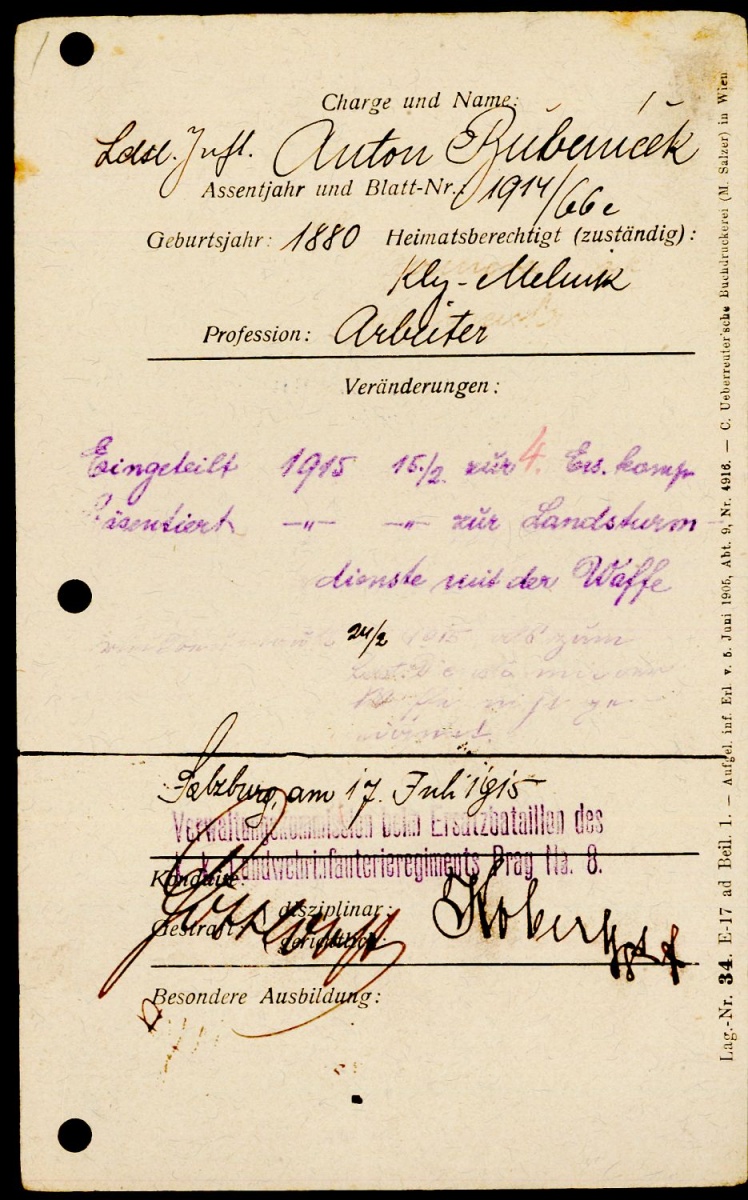 Charge und Name:
Ldst. Inft. Anton Bubeníček
Assentjahr und Blatt-Nr.: 1914/66c
Geburtsjahr: 1880 Heimatsberechtigt (zuständig):
Kly-Melnik
Profession: Arbeiter
Veränderungen:
Eingeteilt 1915 15./2. zur 4. Ers. komp
Präsentiert —„— —„— zur Landsturm
dienste mit der Waffe
24/2 1915 als zum
nicht ge
eignet.
Salzburg, am 17. Juli 1915
Verwaltungskommission beim Ersatzbataillon des
k. k. Landwehrinfanterieregiments Prag Nr. 8.
Konduite:
Gestraft disziplinar:
gerichtlich:
Besondere Ausbildung:
Lag.-Nr. 34. E-17 ad Beil. 1. — Aufgel. inf. Erl. v. 5. Juni 1905, Abt. 9, Nr. 4916. — C. Ueberreuter'sche Buchdruckerei (M. Salzer) in Wien